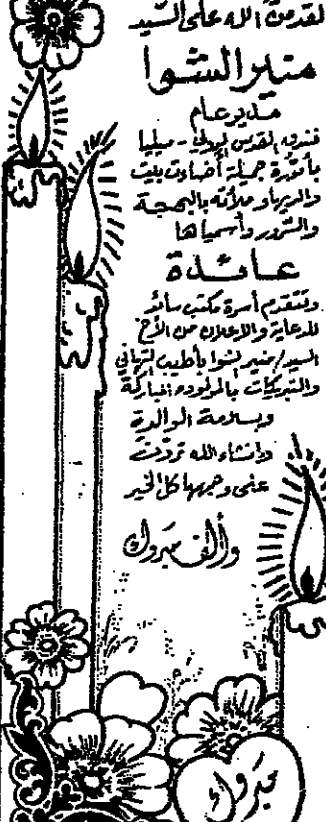 لقد منّ الله على السيد
منير الشوا
مدير عام
فندق القدس الدولي - ميليا
بأميرة جميلة أضاءت بيت
والديها وملأته بالبهجة
والسرور وأسمياها
عائدة
وتتقدم أسرة مكتب سائد
للدعاية والاعلان من الأخ
السيد/منير الشوا بأطيب التهاني
والتبريكات بالمولودة المباركة
وبسلامة الوالدة
وانشاء الله تربت
على وجهها كل الخير
وألف مبروك
مبروك